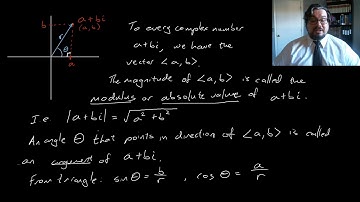 b
a+bi
(a,b)
r
θ
a
To every complex number
a+bi, we have the
vector <a,b>.
The magnitude of <a,b> is called the
modulus or absolute value of a+bi.
I.e |a+bi| = √a²+b²
An angle θ that points in direction of <a,b> is called
an argument of a+bi.
From triangle: sinθ = b/r , cosθ = a/r